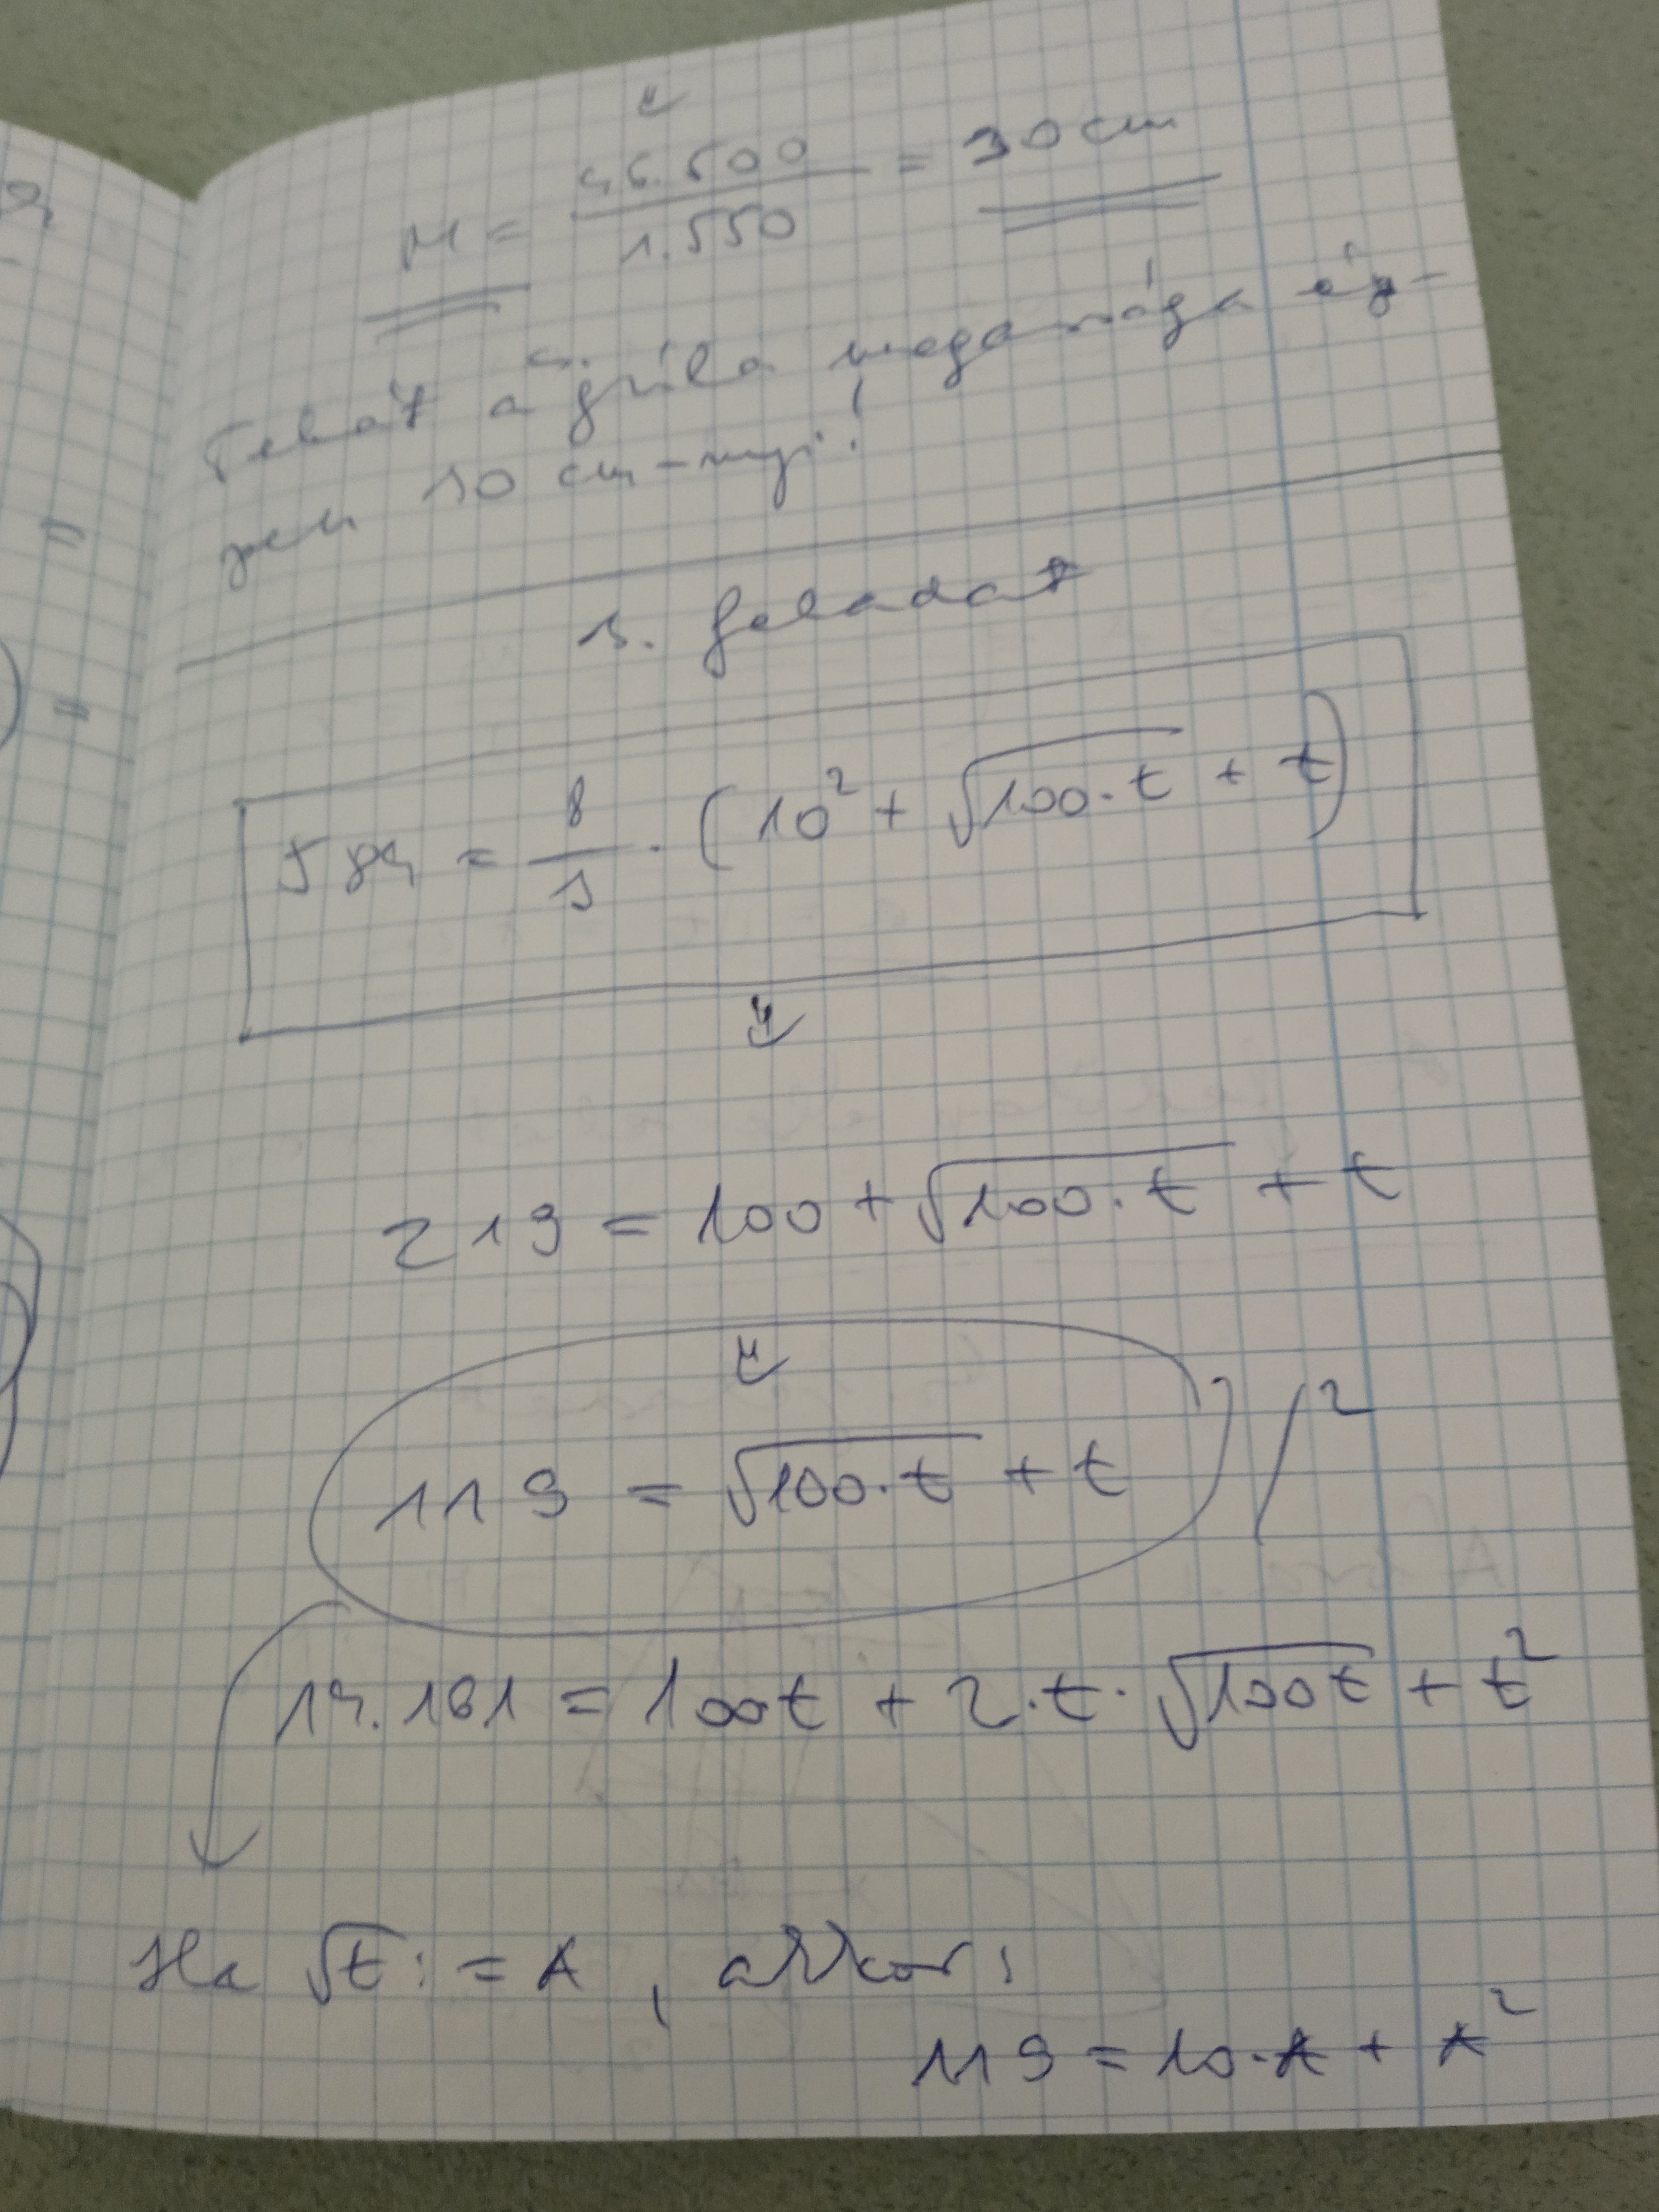 M = 46.500 / 1.550 = 30 cm
Tehát a cs. gúla magassága ép-
pen 30 cm-nyi!
3. feladat
584 = 8/3 · (10² + √100·t + t)
⇓
219 = 100 + √100·t + t
⇓
119 = √100·t + t /²
14.161 = 100t + 2·t·√100t + t²
Ha √t := A, akkor:
119 = 10·A + A²